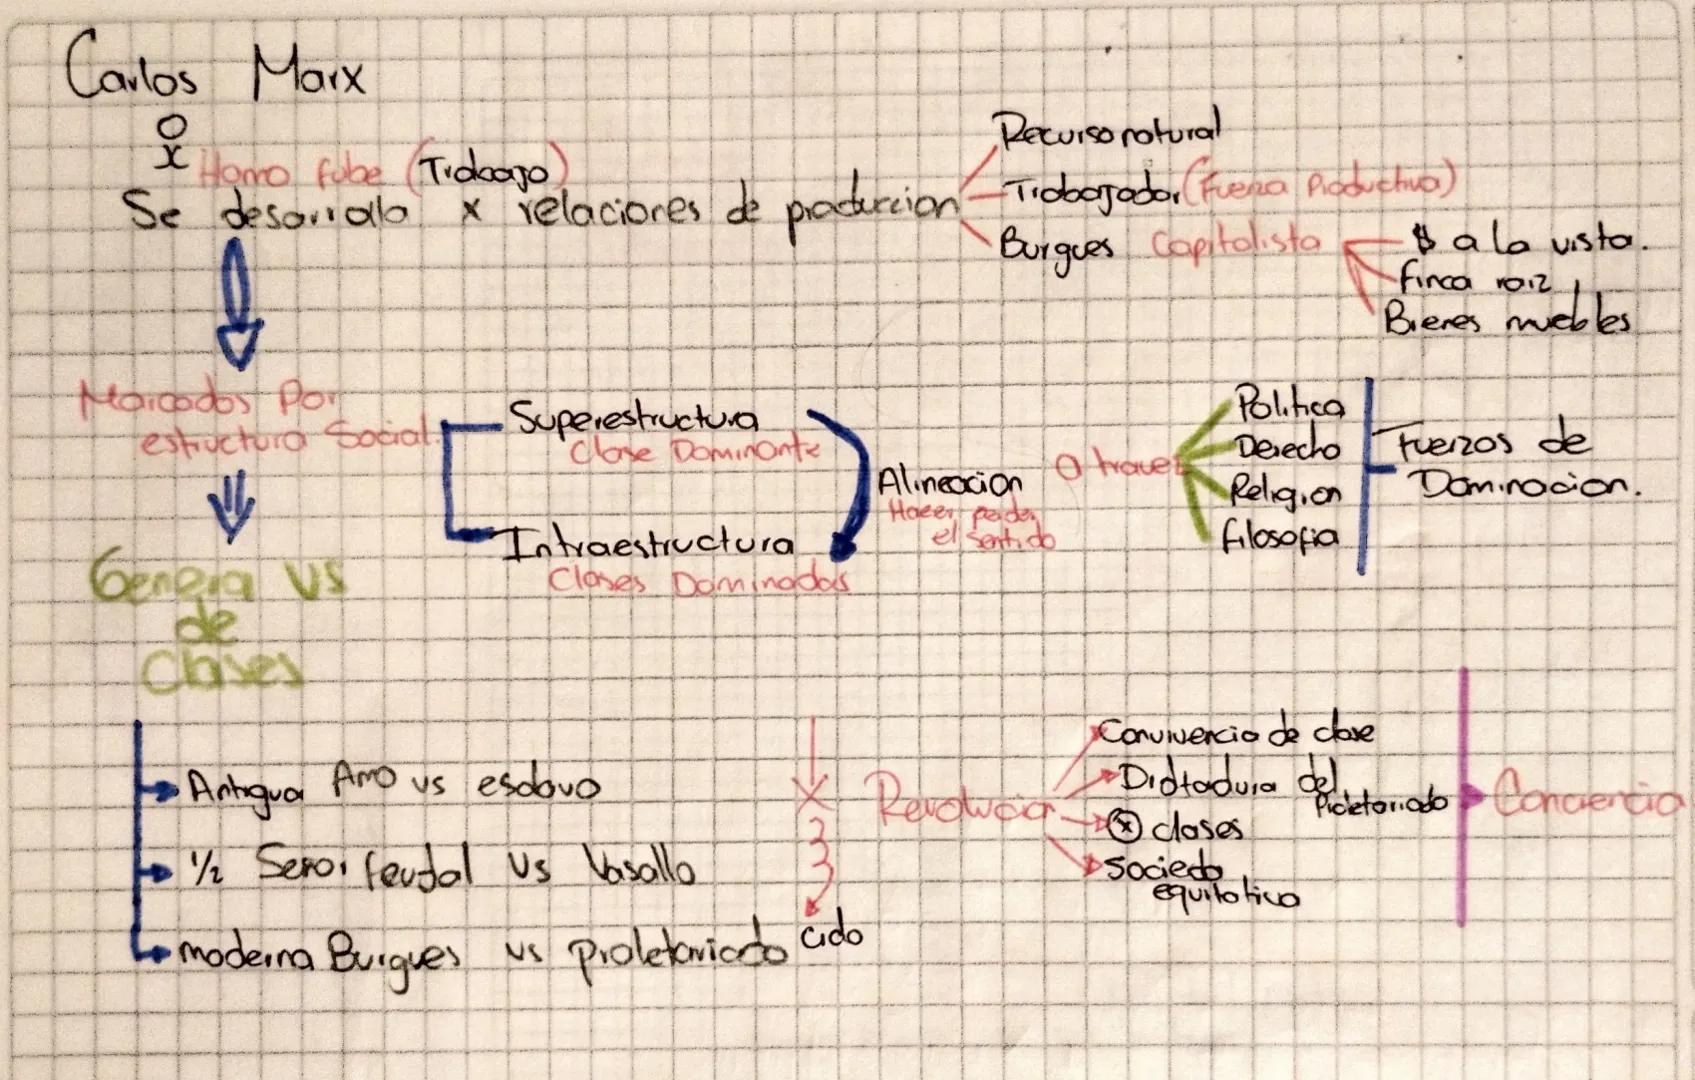 Carlos Marx
Homo fabe (Trabajo)
Se desarrolla x relaciones de produccion
Recurso natural
Trabajador (Fuerza Productiva)
Burgues Capitalista
$ a la vista.
Finca raiz
Bienes muebles
Marcados Por
estructura Social
Superestructura
Clase Dominante
Intraestructura
Clases Dominadas
Alineacion
Hacer perder
el sentido
a travez
Politica
Derecho
Religion
filosofia
Fuerzas de
Dominacion.
Genera VS
de
Clases
Antigua Amo vs esclavo
1/2 Señor feudal Vs Vasallo
moderna Burgues vs proletariado
X
ciclo
Revolucion
Convivencia de clase
Dictadura del
Proletariado
x clases
Socieda
equitativa
Conciencia